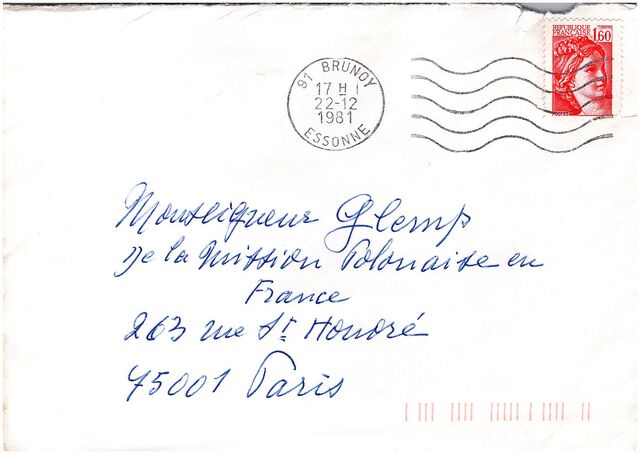 REPUBLIQUE
FRANÇAISE
1,60
91 BRUNOY
17 H
22-12
1981
ESSONNE
Monseigneur Glemp
De la Mission Polonaise en
France
263 rue St Honoré
75001 Paris